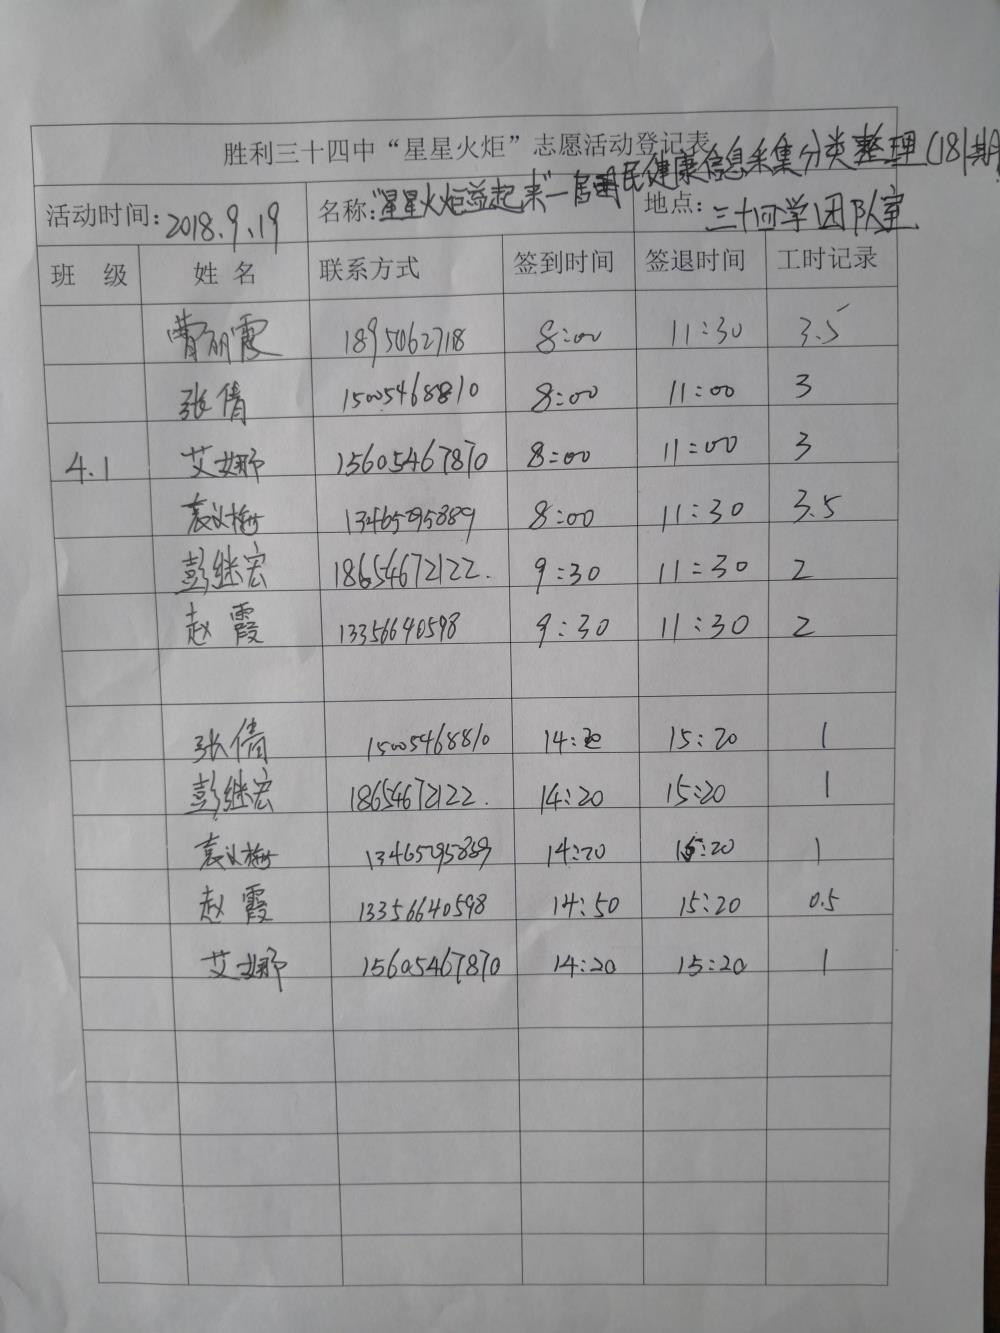 胜利三十四中“星星火炬”志愿活动登记表
活动时间：2018.9.19 名称："星星火炬益起来"一居民健康信息采集分类整理(181期) 地点：三十四学团队室
班 级 姓 名 联系方式 签到时间 签退时间 工时记录
曹丽霞 1895062718 8:00 11:30 3.5
张倩 15005468810 8:00 11:00 3
4.1 艾娜 15605467870 8:00 11:00 3
袁义梅 13465295889 8:00 11:30 3.5
彭继宏 18654672122. 9:30 11:30 2
赵霞 13356640598 9:30 11:30 2
张倩 15005468810 14:20 15:20 1
彭继宏 18654672122. 14:20 15:20 1
袁义梅 13465295889 14:20 15:20 1
赵霞 13356640598 14:50 15:20 0.5
艾娜 15605467870 14:20 15:20 1